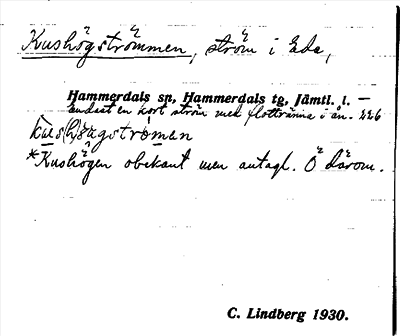 Kushögströmmen, ström i Eda,
Hammerdals sn, Hammerdals tg, Jämtl. l. —
endast en kort ström med flottränna i ån. 226
kus(h)ögströmen
*Kushögen obekant men antagl. Ö därom.
C. Lindberg 1930.